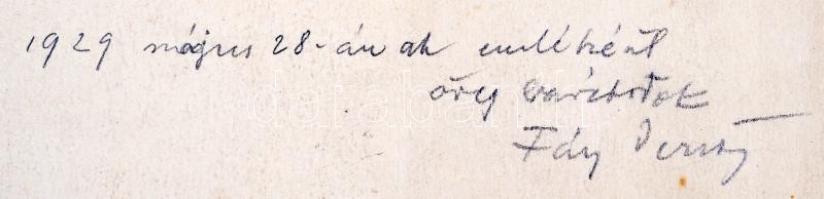 1929 május 28-ának emlékéül
öreg barátotok
Fáy Dezső